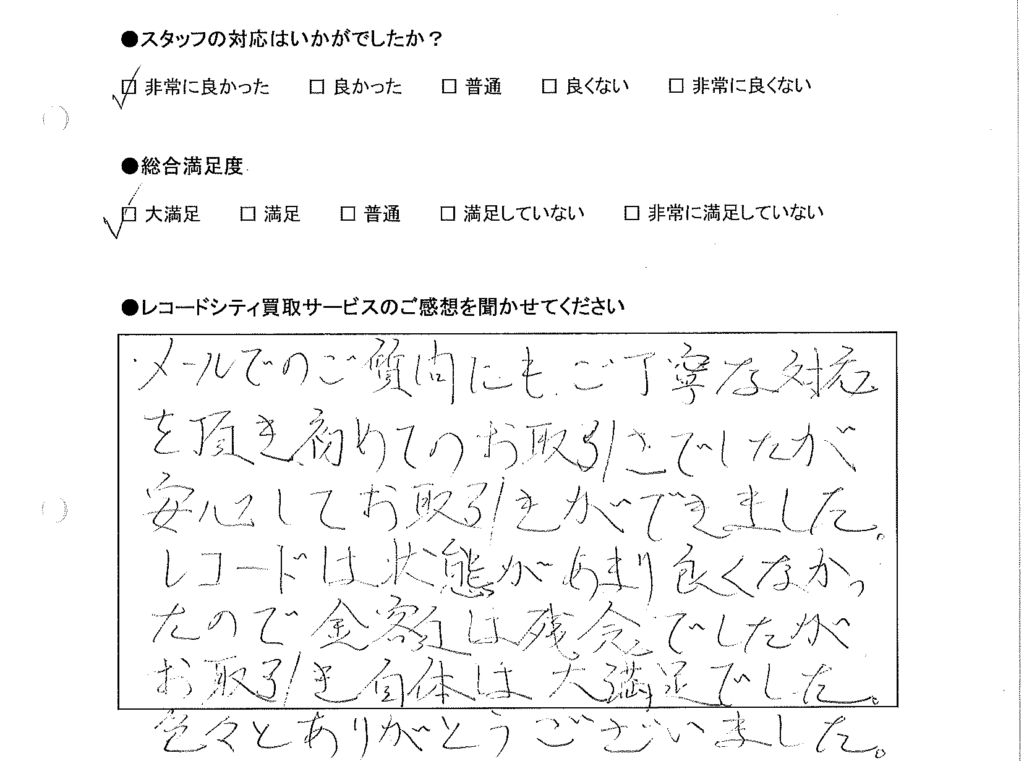 ●スタッフの対応はいかがでしたか？
☑ 非常に良かった □ 良かった □ 普通 □ 良くない □ 非常に良くない
●総合満足度
☑ 大満足 □ 満足 □ 普通 □ 満足していない □ 非常に満足していない
●レコードシティ買取サービスのご感想を聞かせてください
・メールでのご質問にも、ご丁寧な対応
を頂き初めてのお取引きでしたが
安心してお取引きができました。
レコードは状態があまり良くなかっ
たので金額は残念でしたが
お取引き自体は大満足でした。
色々とありがとうございました。